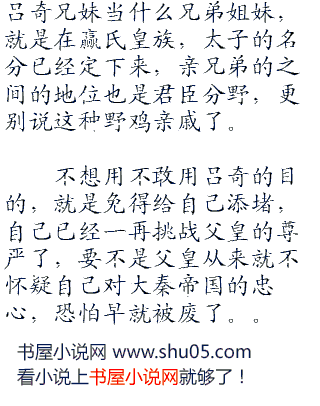 吕奇兄妹当什么兄弟姐妹，
就是在嬴氏皇族，太子的名
分已经定下来，亲兄弟的之
间的地位也是君臣分野，更
别说这种野鸡亲戚了。
不想用不敢用吕奇的目
的，就是免得给自己添堵，
自己已经一再挑战父皇的尊
严了，要不是父皇从来就不
怀疑自己对大秦帝国的忠
心，恐怕早就被废了。。
书屋小说网 www.shu05.com
看小说上书屋小说网就够了！